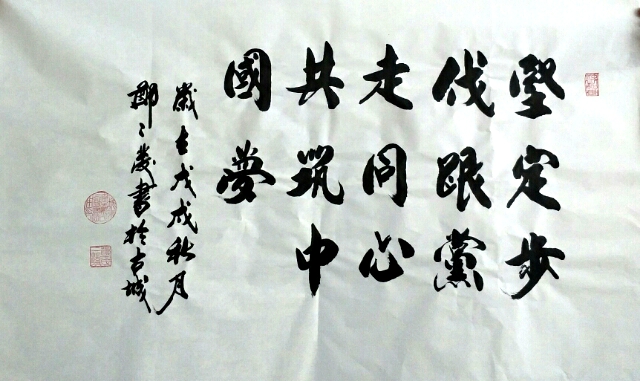 堅定步
伐跟黨
走同心
共筑中
國夢
歲在戊戌秋月
書於古城